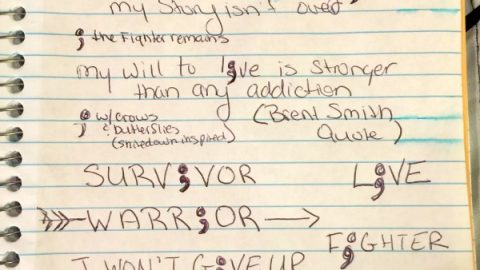 my Story isn't over
; the Fighter remains
my will to l;ve is stronger
than any addiction
; w/crows
& butterflies
(shinedown inspired)
(Brent Smith
Quote)
SURV;VOR
L;VE
WARR;OR
F;GHTER
I WON'T G;VE UP